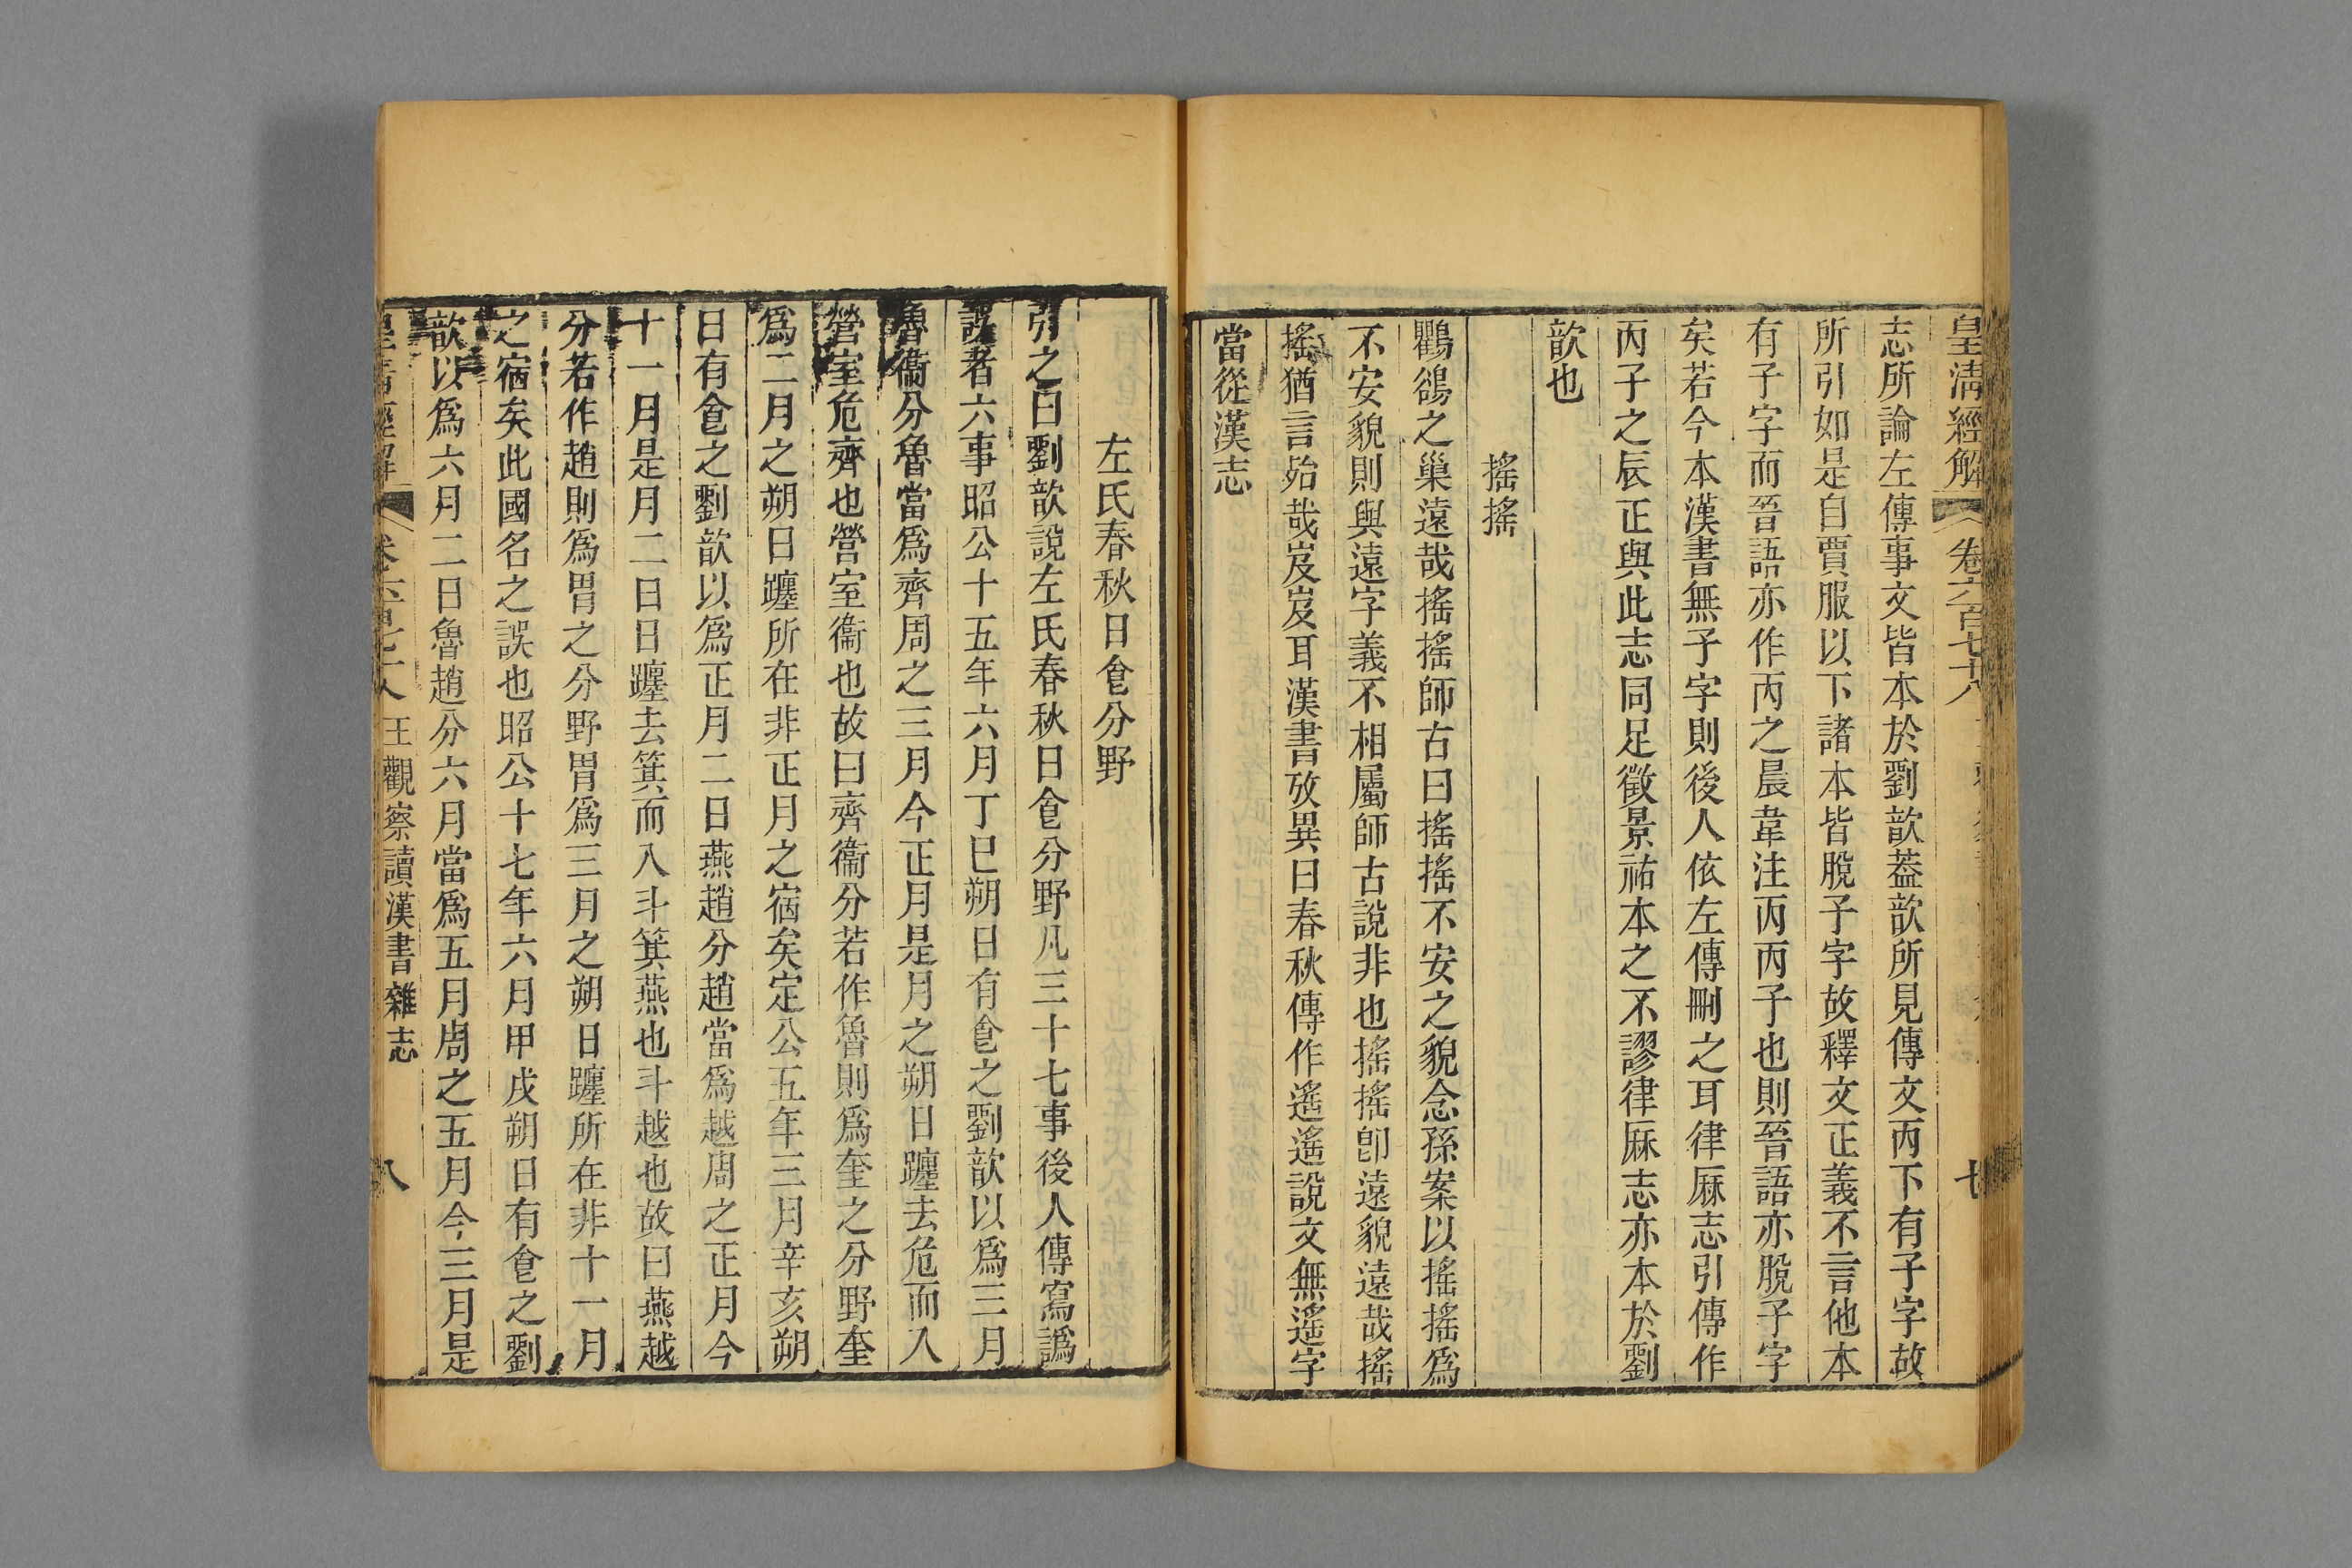 皇清經解 卷六百七十八 七
志所論左傳事文皆本於劉歆葢歆所見傳文丙下有子字故
所引如是自賈服以下諸本皆脫子字故釋文正義不言他本
有子字而晉語亦作丙之晨韋注丙丙子也則晉語亦脫子字
矣若今本漢書無子字則後人依左傳刪之耳律厤志引傳作
丙子之辰正與此志同足徵景祐本之不謬律厤志亦本於劉
歆也
搖搖
鸜鵒之巢遠哉搖搖師古曰搖搖不安之貌念孫案以搖搖爲
不安貌則與遠字義不相屬師古說非也搖搖卽遠貌遠哉搖
搖猶言殆哉岌岌耳漢書攷異曰春秋傳作遙遙說文無遙字
當從漢志
左氏春秋日食分野
引之曰劉歆說左氏春秋日食分野凡三十七事後人傳寫譌
誤者六事昭公十五年六月丁巳朔日有食之劉歆以爲三月
魯衞分魯當爲齊周之三月今正月是月之朔日躔去危而入
營室危齊也營室衞也故曰齊衞分若作魯則爲奎之分野奎
爲二月之朔日躔所在非正月之宿矣定公五年三月辛亥朔
日有食之劉歆以爲正月二日燕趙分趙當爲越周之正月今
十一月是月二日日躔去箕而入斗箕燕也斗越也故曰燕越
分若作趙則爲胃之分野胃爲三月之朔日躔所在非十一月
之宿矣此國名之誤也昭公十七年六月甲戌朔日有食之劉
歆以爲六月二日魯趙分六月當爲五月周之五月今三月是
皇清經解 卷六百七十八 王觀察讀漢書雜志 八